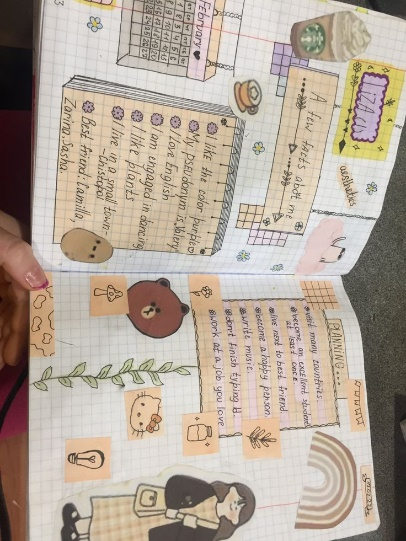 February
A few facts about me
I like the color purple
My pseudonym is Valery
I love English
I am engaged in dancing
I like plants
I live in a small town -
Chistopol
Best friend Camilla,
Zarina, Sasha.
aesthetics
PLANNING...
visit many countries.
become an excellent student
at least once
live next to best friend
become a happy person
write music.
don't finish typing it
work at a job you love